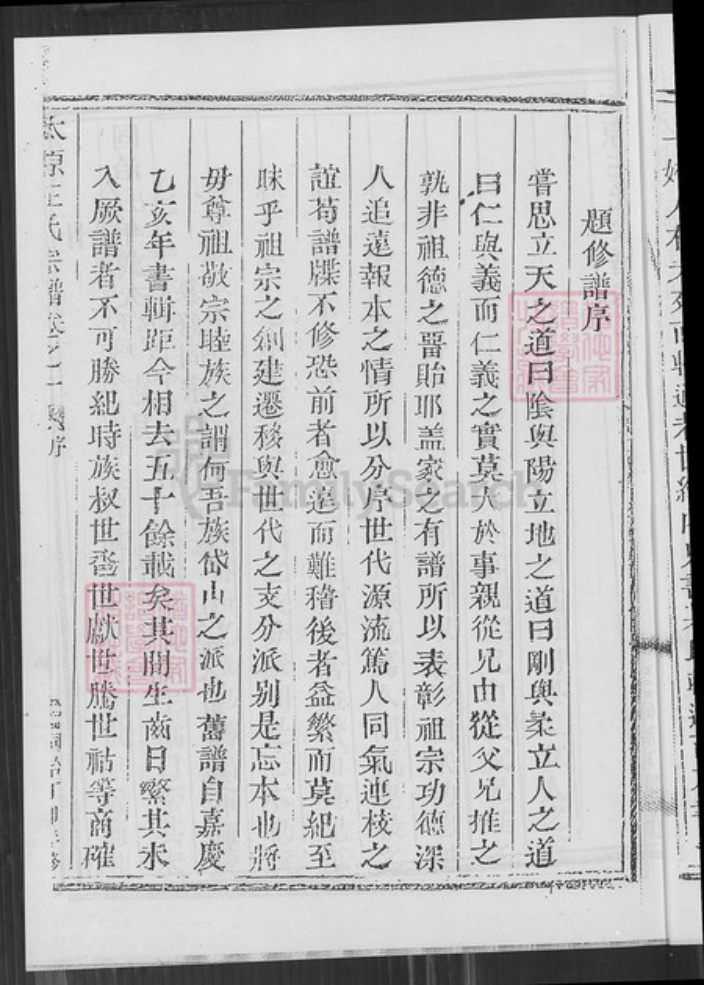 題修譜序
嘗思立天之道曰陰與陽立地之道曰剛與柔立人之道
曰仁與義而仁義之實莫大於事親從兄由從父兄推之
孰非祖德之留貽耶蓋家之有譜所以表彰祖宗功德深
人追遠報本之情所以分序世代源流篤人同氣連枝之
誼苟譜牒不修恐前者愈遠而難稽後者益繁而莫紀至
昧乎祖宗之創建遷移與世代之支分派别是忘本也將
毋尊祖敬宗睦族之謂何吾族岱山之派也舊譜自嘉慶
乙亥年書輯距今相去五十餘載矣其間生齒日繁其未
入厥譜者不可勝紀時族叔世 世獻世騰世祜等商確
太原王氏宗譜卷之一 序
同治丁卯 修
FamilySearch